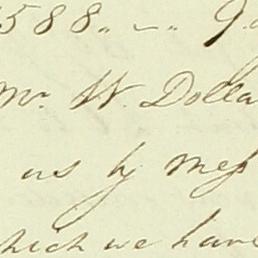 1588 " - "
Mr. W. Dolla
us by Mess
which we have